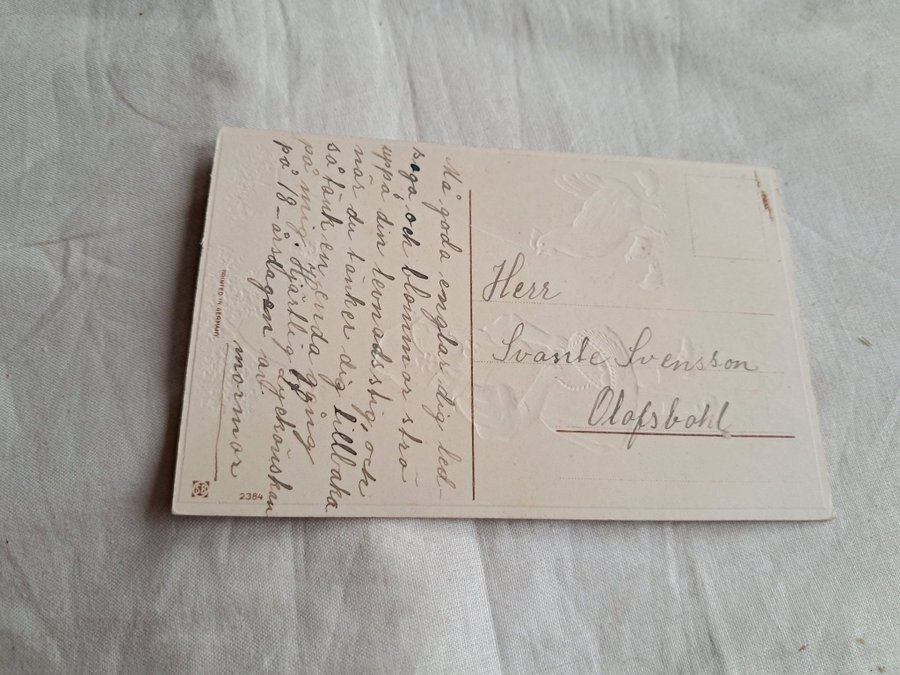 Må goda englar dig led-
saga, och blommor strö
uppå din levnadsstig, och
när du tänker dig tillbaka
så tänk en enda gång
på mig. Hjärtlig lyckönskan
på 18-årsdagen av
mormor
Herr
Svante Svensson
Olofsbohl
PRINTED IN GERMANY
2384